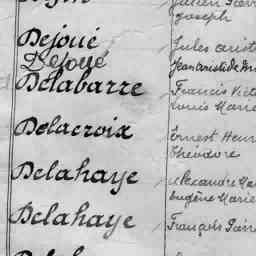 Joseph
Dejoué Jules Arist
Dejoué Jean Aristide
Delabarre Francis Vict
Louis Marie
Delacroix Ernest Henr
Théodore
Delahaye Alexandre Ma
Eugène Marie
Delahaye François Pierr